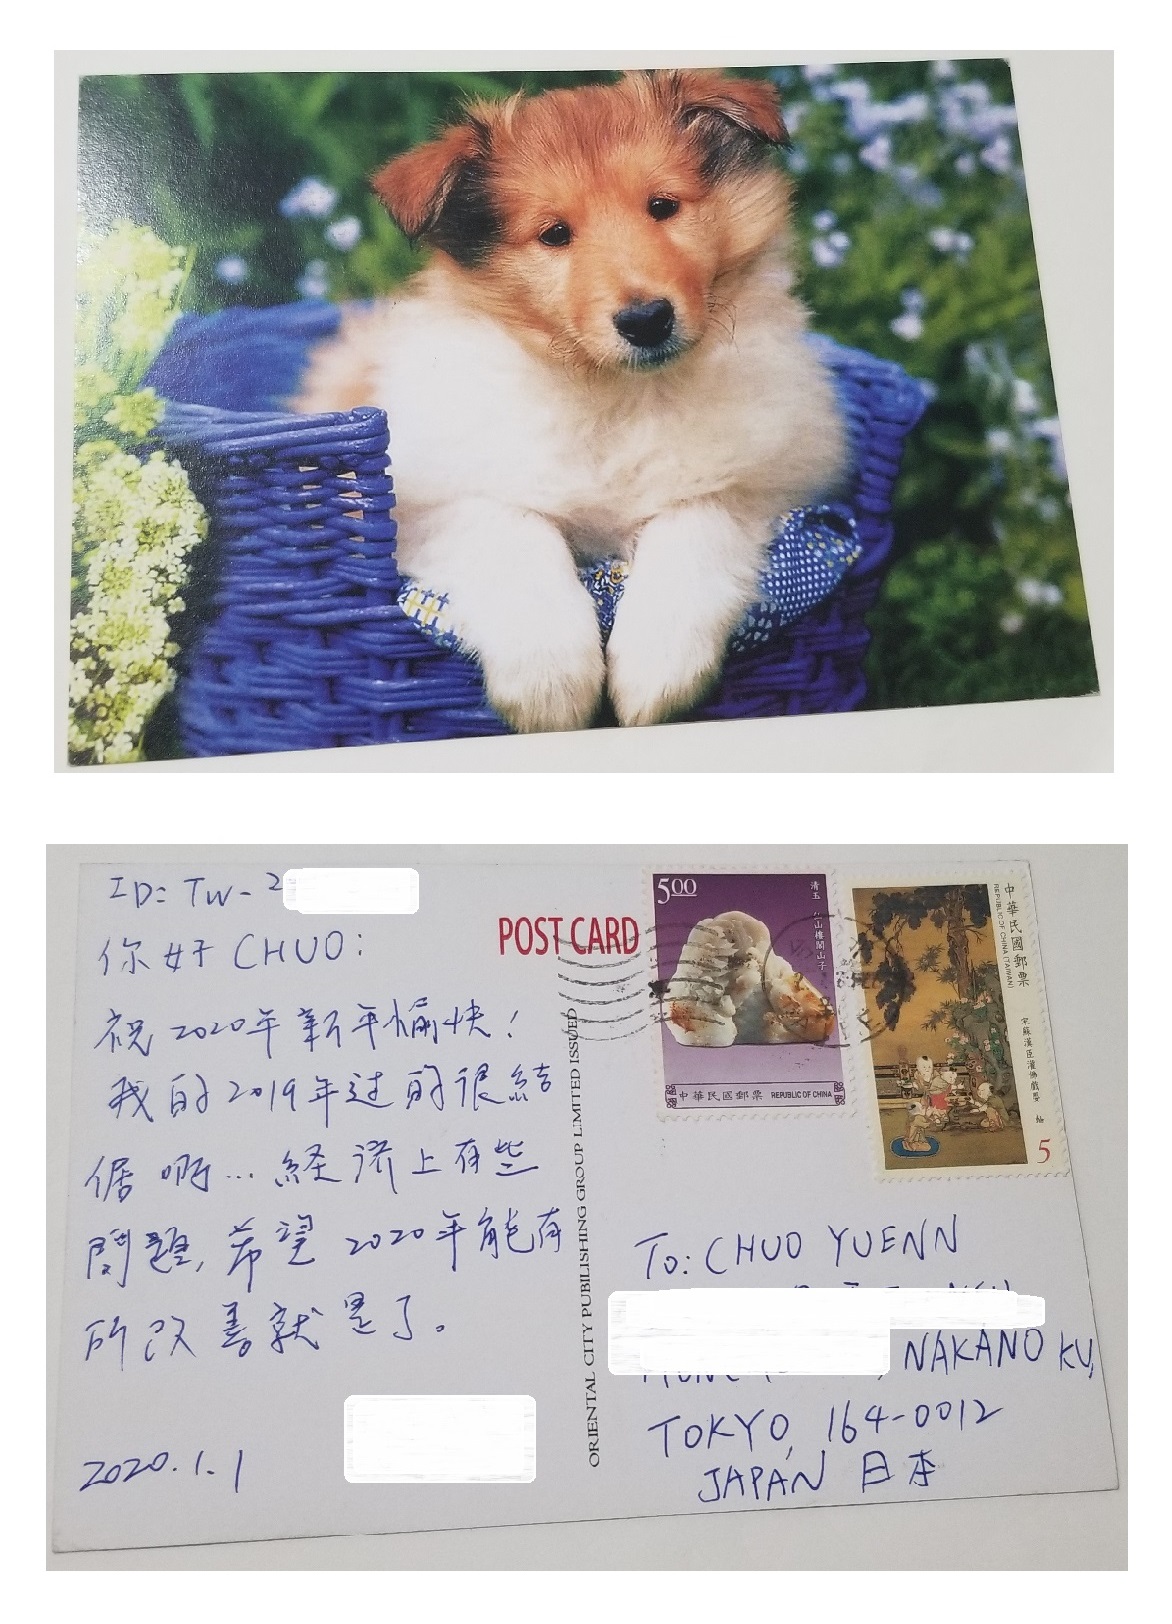 ID: TW-2
你好 CHUO:
祝 2020年 新年愉快!
我的2019年过的很結
倨啊...経済上有些
問題,希望 2020年能有
所改善就是了。
2020.1.1
POST CARD
ORIENTAL CITY PUBILISHING GROUP LIMITED ISSUED
5.00
清玉 仙山樓閣山子
中華民國郵票 REPUBLIC OF CHINA
中華民國郵票
REPUBLIC OF CHINA (TAIWAN)
宋蘇漢臣灌佛戲嬰 軸
5
To: CHUO YUENN
NAKANO KU,
TOKYO, 164-0012
JAPAN 日本